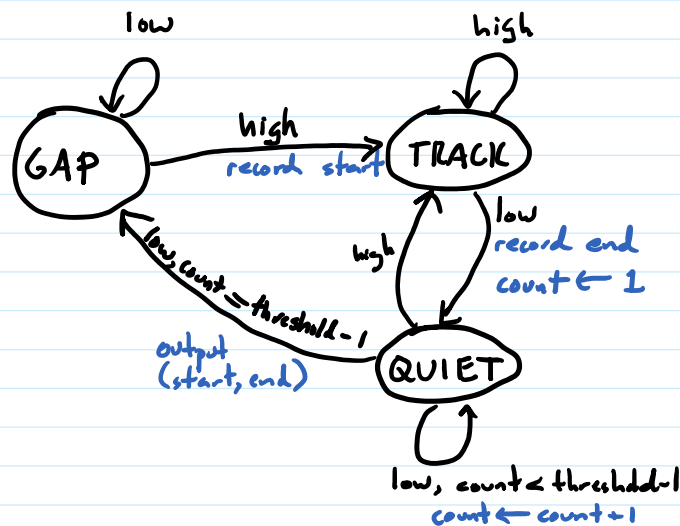 low
high
high
GAP
TRACK
record start
low
record end
count ← 1
high
low, count = threshold-1
output
(start, end)
QUIET
low, count < threshold-1
count ← count + 1